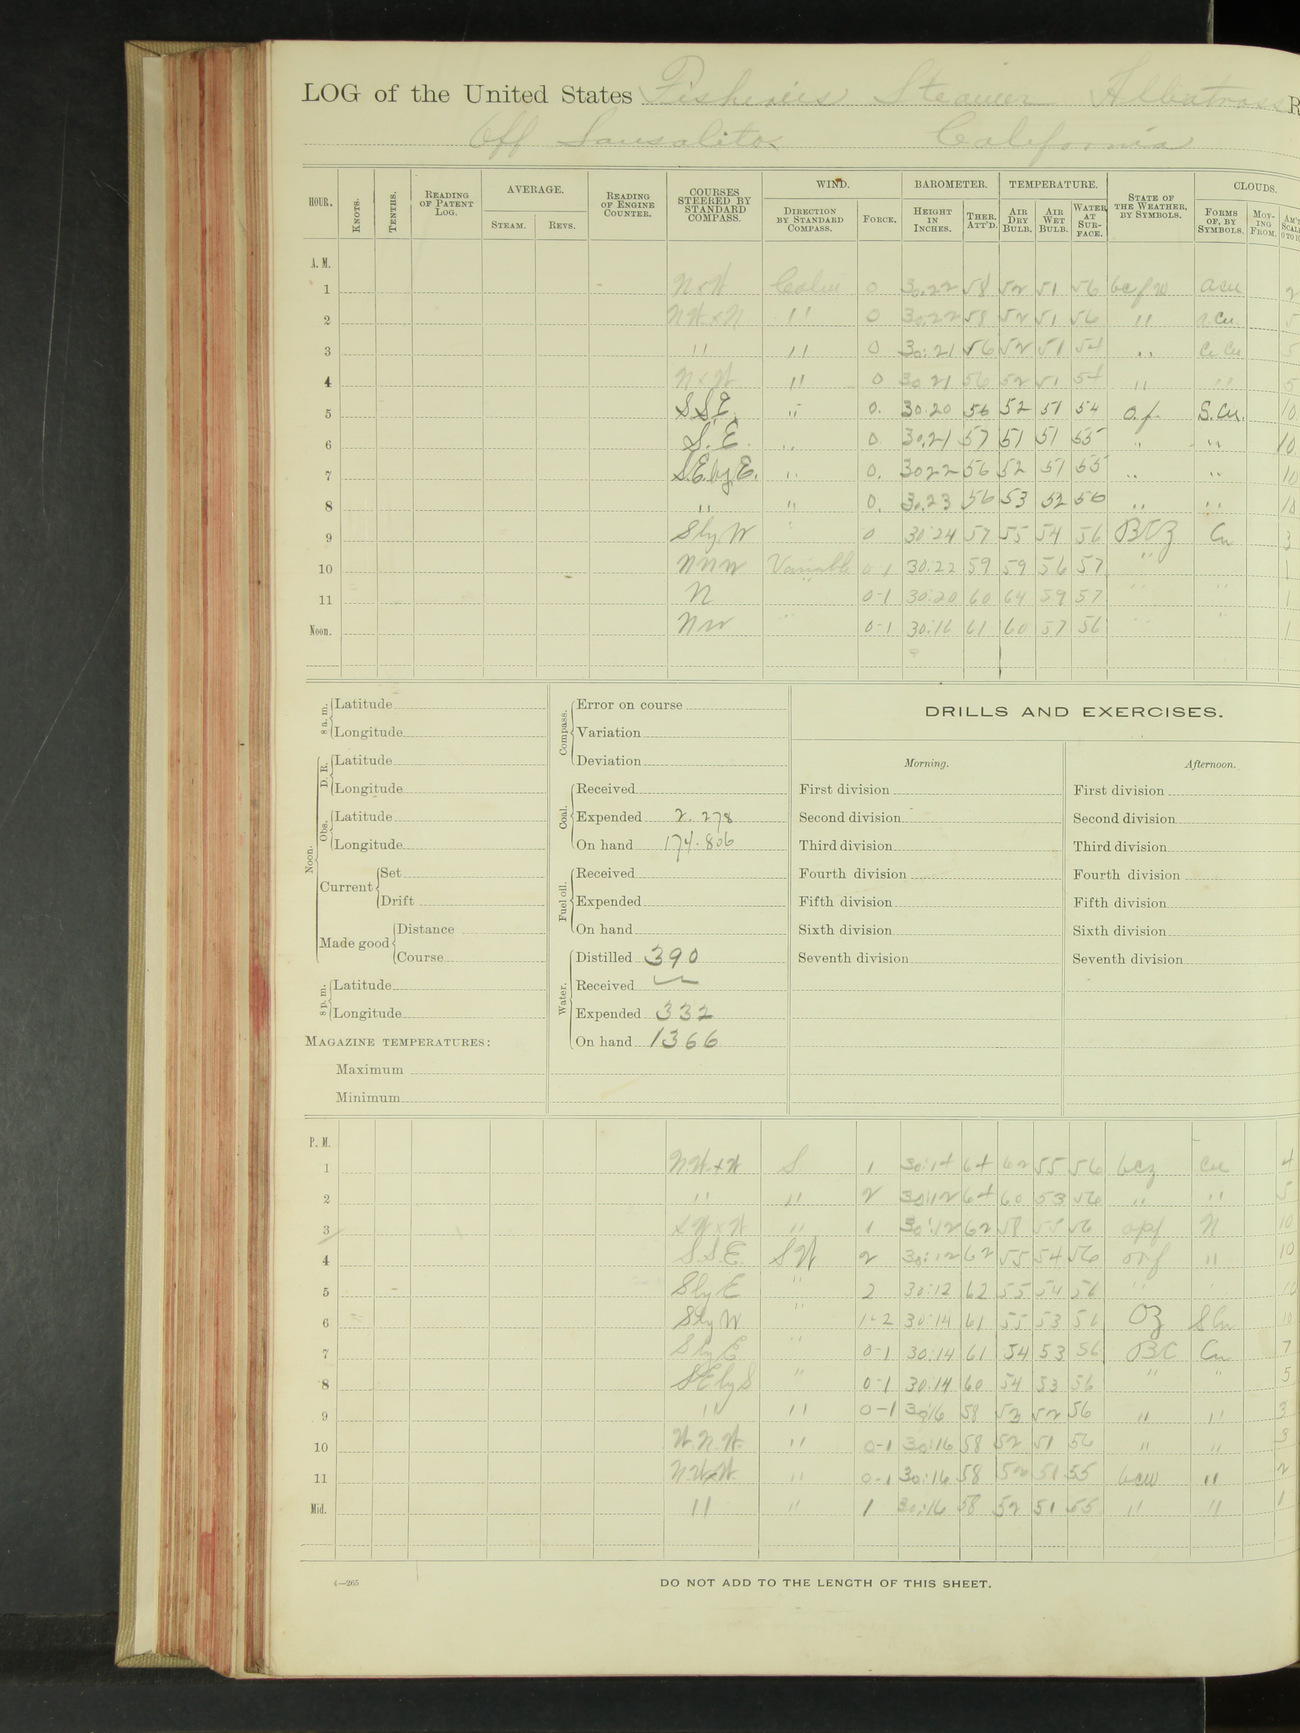 LOG of the United States Fisheries Steamer Albatross R
Off Sausalito California
HOUR. KNOTS. TENTHS. READING OF PATENT LOG. AVERAGE. STEAM. REVS. READING OF ENGINE COUNTER. COURSES STEERED BY STANDARD COMPASS. WIND. DIRECTION BY STANDARD COMPASS. FORCE. BAROMETER. HEIGHT IN INCHES. THER. ATT'D. TEMPERATURE. AIR DRY BULB. AIR WET BULB. WATER AT SURFACE. STATE OF THE WEATHER, BY SYMBOLS. CLOUDS. FORMS OF, BY SYMBOLS. MOVING FROM.
A. M.
1 NxW Calm 0 30.22 58 52 51 56 bcfw acu 2
2 NWxN " 0 30.22 58 52 51 56 " a.cu. 5
3 " " 0 30.21 56 52 51 54 " Ci Cu 5
4 NxW " 0 30 21 56 52 51 54 " " 5
5 SSE. " 0. 30.20 56 52 51 54 o.f. S.Cu. 10
6 S.E. " 0 30.21 57 51 51 55 " " 10
7 S.E. by E. " 0. 30 22 56 52 51 55 " " 10
8 " " 0. 30.23 56 53 52 56 " " 10
9 S by W " 0 30.24 57 55 54 56 BCZ Cu 3
10 NNW Variable 0 1 30.22 59 59 56 57 " 1
11 N " 0-1 30.20 60 64 59 57 " " 1
Noon. NW " 0-1 30.16 61 60 57 56 " " 1
8 a. m. Latitude
Longitude
Noon. D. R. Latitude
Longitude
Obs. Latitude
Longitude
Current Set
Drift
Made good Distance
Course
8 p. m. Latitude
Longitude
MAGAZINE TEMPERATURES:
Maximum
Minimum
Compass. Error on course
Variation
Deviation
Coal. Received
Expended 2.278
On hand 174.806
Fuel oil. Received
Expended
On hand
Water. Distilled 390
Received
Expended 332
On hand 1366
DRILLS AND EXERCISES.
Morning. Afternoon.
First division First division
Second division Second division
Third division Third division
Fourth division Fourth division
Fifth division Fifth division
Sixth division Sixth division
Seventh division Seventh division
P. M.
1 NWxW S 1 30.14 64 62 55 56 bcz cu 4
2 " " 2 30.12 64 60 53 56 " " 5
3 " 1 30.12 62 58 55 56 N 10
4 S.S.E. SW 2 30.12 62 55 54 56 " 10
5 S by E " 2 30.12 62 55 54 56 " " 10
6 S by W " 1-2 30.14 61 55 53 56 OZ S Cu 10
7 S by E " 0-1 30.14 61 54 53 56 BC Cu 7
8 SE by S " 0-1 30.14 60 54 53 56 " " 5
9 " " 0-1 30.16 58 53 52 56 " " 3
10 W.N.W. " 0-1 30.16 58 52 51 56 " " 3
11 NWxW " 0-1 30.16 58 52 51 55 bcw " 2
Mid. " " 1 30.16 58 52 51 55 " " 1
4—265
DO NOT ADD TO THE LENGTH OF THIS SHEET.